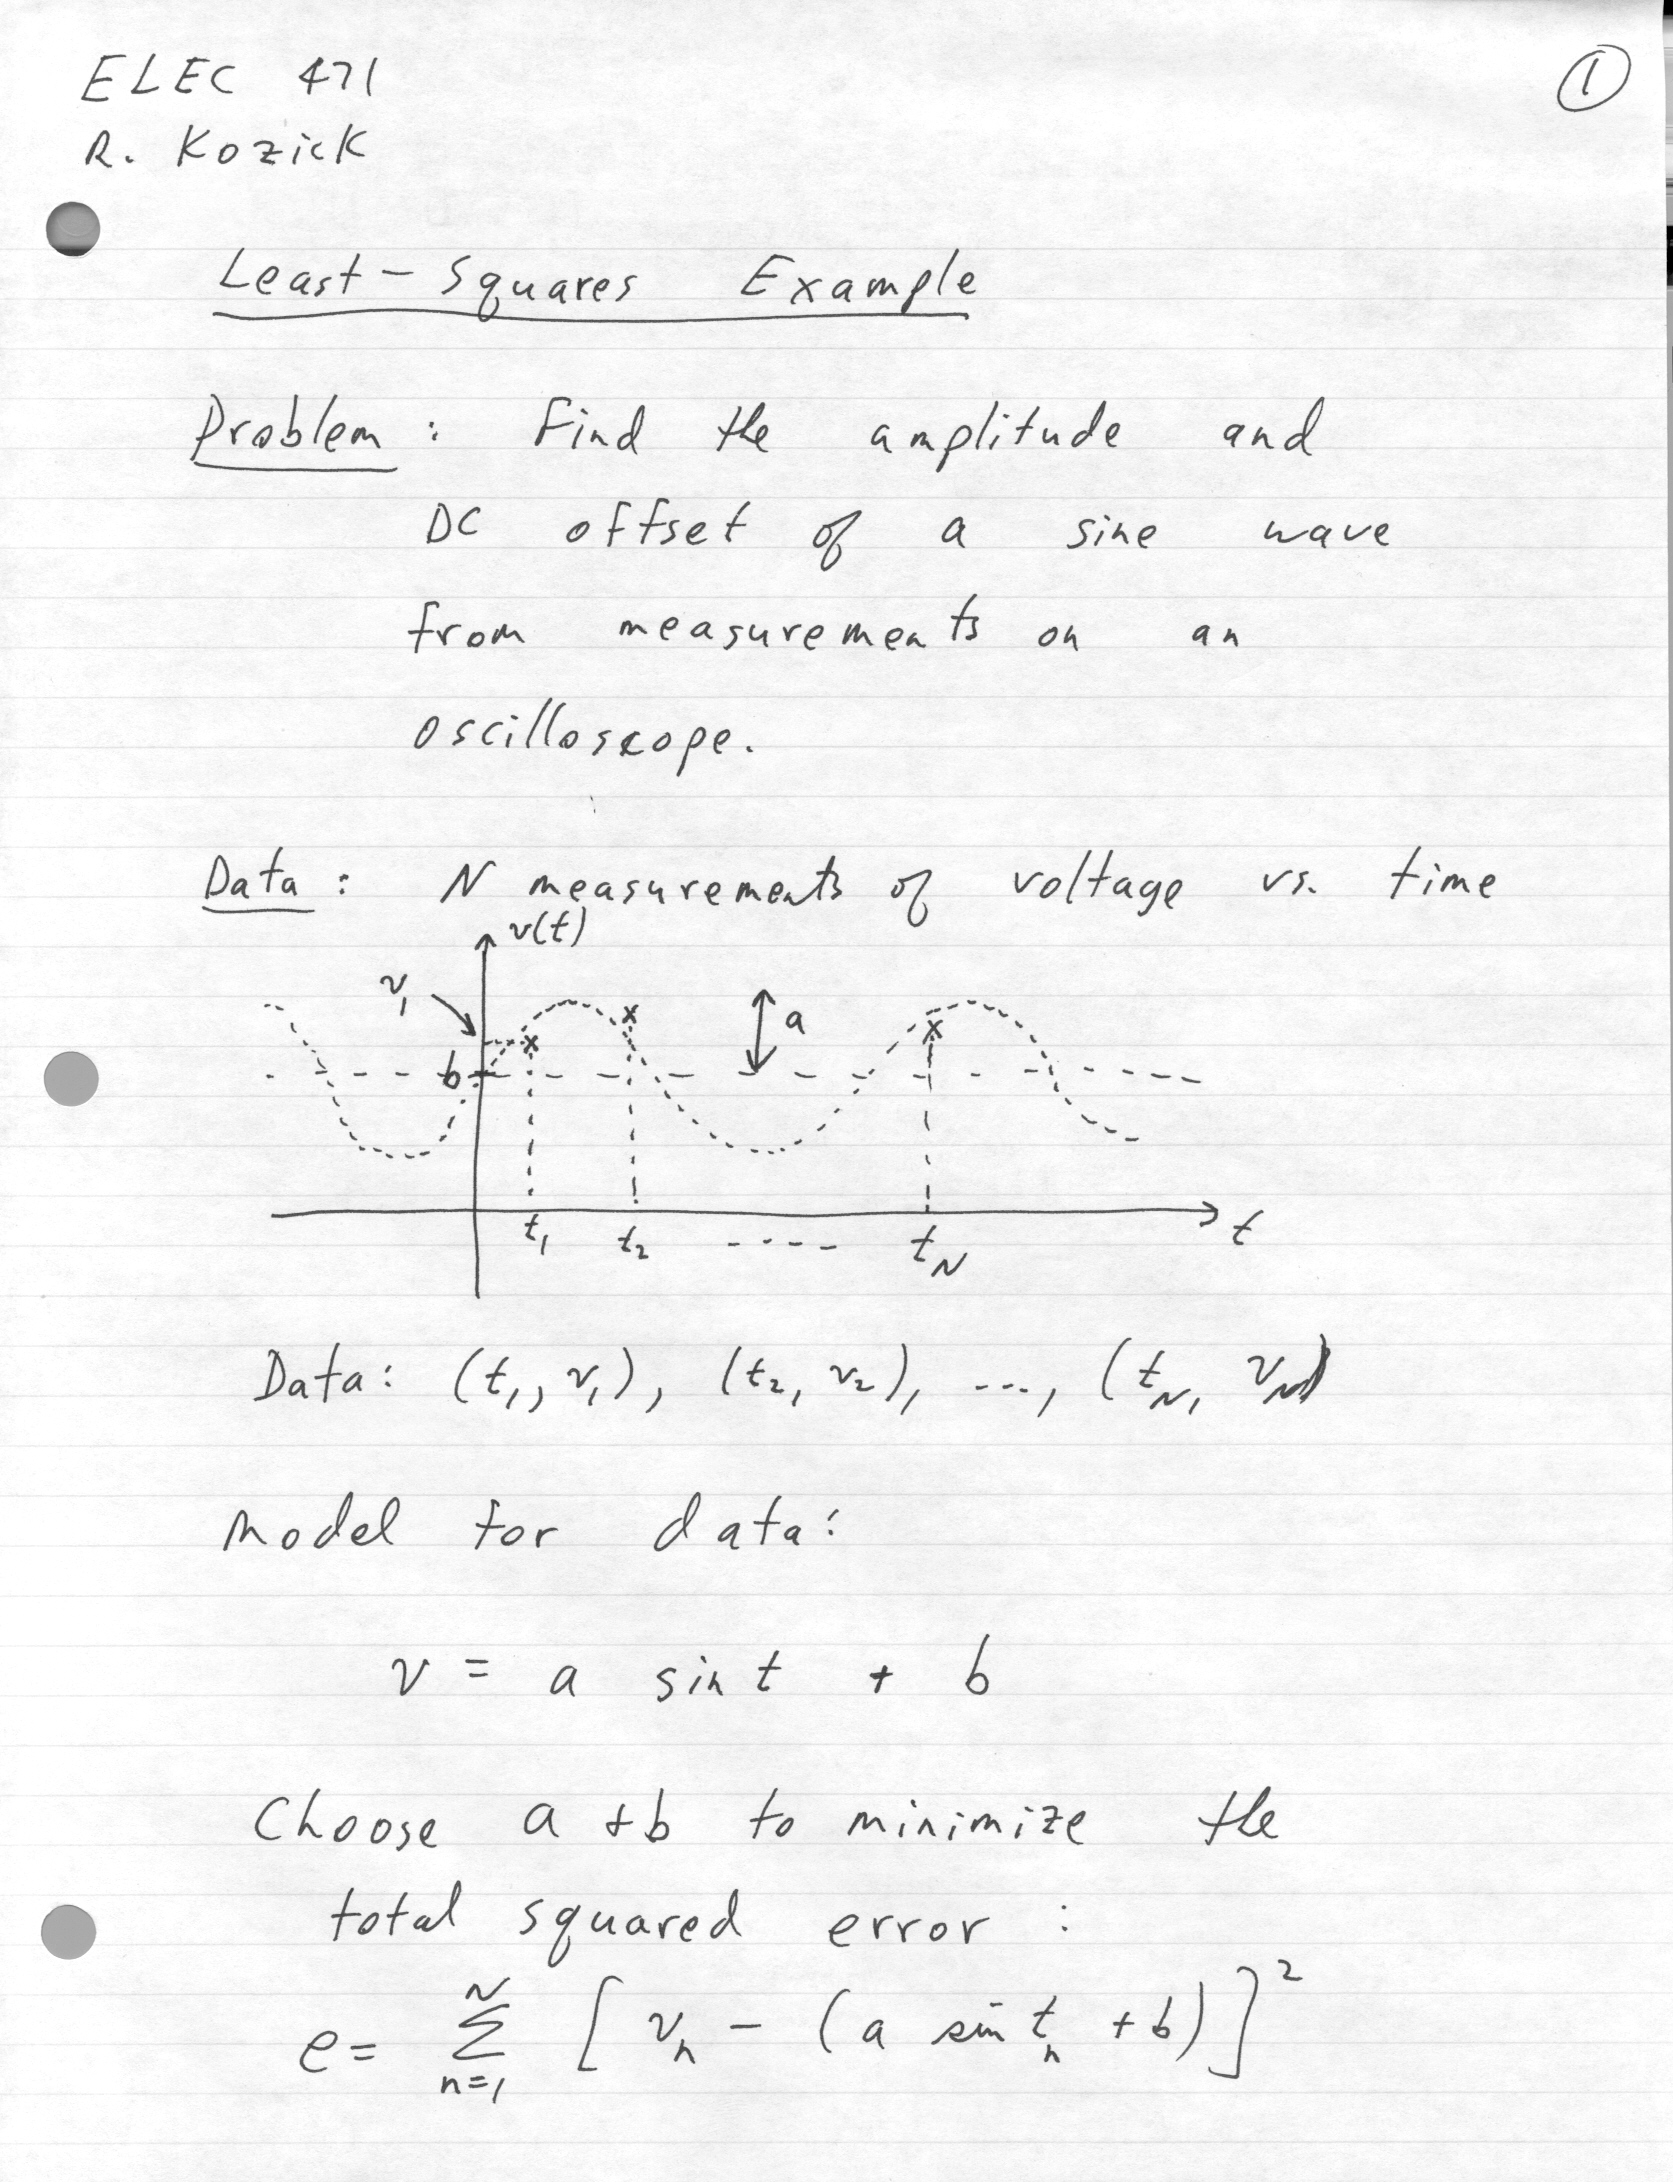 ELEC 471
①
R. Kozick
Least-Squares Example
Problem: Find the amplitude and
DC offset of a sine wave
from measurements on an
oscilloscope.
Data: N measurements of voltage vs. time
v(t)
v₁
a
b
t₁ t₂ ---- t_N t
Data: (t₁, v₁), (t₂, v₂), ..., (t_N, v_N)
Model for data:
v = a sin t + b
Choose a + b to minimize the
total squared error:
e = Σ_{n=1}^{N} [v_n - (a sin t_n + b)]²